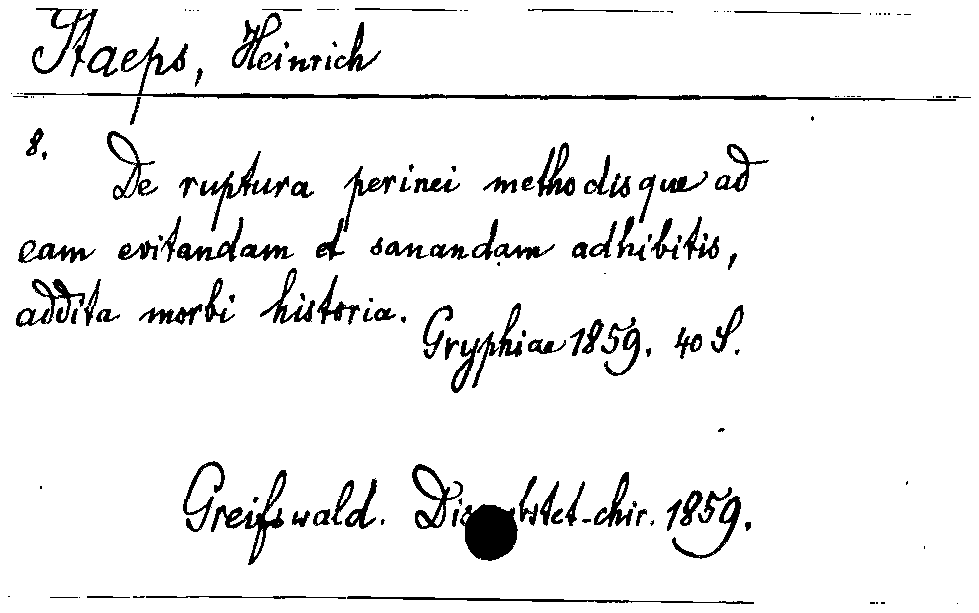 Staeps, Heinrich
8.
De ruptura perinei methodisque ad
eam evitandam et sanandam adhibitis,
addita morbi historia.
Gryphiae 1859. 40 S.
Greifswald. 1859.